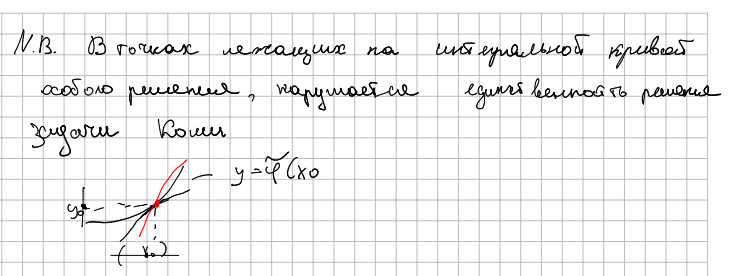 N.B. В точках лежащих на интегральной кривой
особого решения, нарушается единственность решения
задачи Коши
y = φ̃(x₀
y₀
( x₀ )